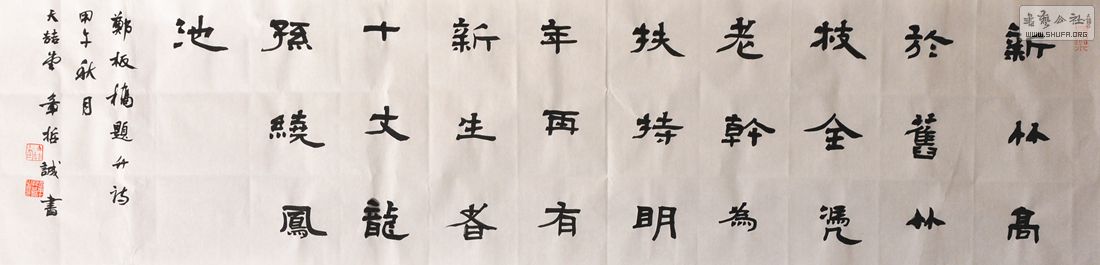 新竹高
於舊竹
枝全憑
老幹為
扶持明
年再有
新生者
十丈龍
孫繞鳳
池
鄭板橋題竹詩
甲午秋月
堂章哲誠書
書藝公社
WWW.SHUFA.ORG